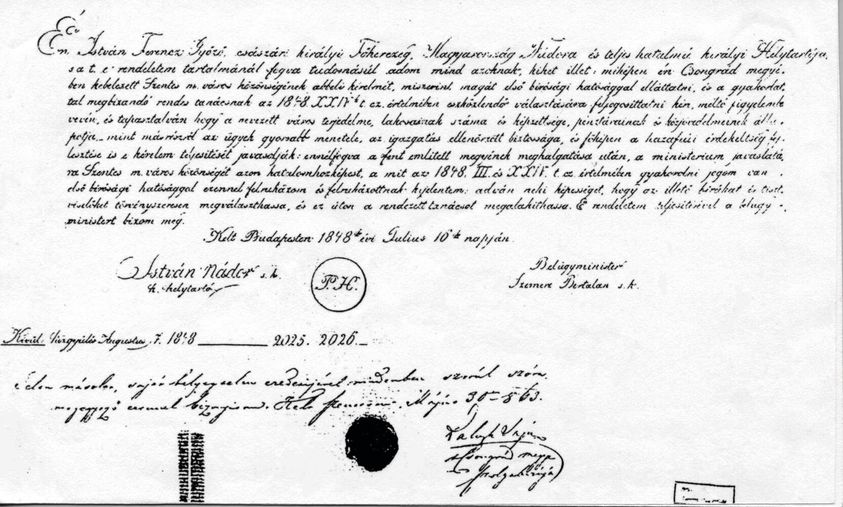 Én István Ferencz Győző, császári királyi Főherczeg, Magyarország Nádora és teljes hatalmú királyi Helytartója,
s a t. e rendeletem tartalmánál fogva tudomásúl adom mind azoknak, kiket illet: miképen én Csongrád megyé-
ben kebelezett Szentes m. város közönségének abbeli kérelmét, miszerint magát első birósági hatósággal elláttatni, és a gyakorlat-
tal megbizandó rendes tanácsnak az 1848 XXIV t. cz. értelmében eszközlendő választására feljogosíttatni kéri, méltó figyelembe
vevén, és tapasztalván hogy a nevezett város terjedelme, lakosainak száma és képzettsége, pénztárainak és közjövedelmeinek álla-
potja, mint másrészről az ügyek gyorsabb menetele, az igazgatás ellenőrzött biztossága, és főképen a hazafiúi érdekeltség fej-
lesztése is e kérelem teljesítését javasolják: ennélfogva a fent említett megyének meghalgatása után, a ministerium javaslatá-
ra Szentes m. város közönségét azon hatalomhozképest, a mit az 1848. III és XXIV. t. cz értelmében gyakorolni jogom van
első birósági hatósággal ezennel felruházom és felruházottnak kijelentem: adván neki képességet, hogy az illető birákat és tiszt-
viselőket törvényszerűen megválaszthassa, és ez úton a rendezett tanácsot megalakíthassa. E rendeletem teljesítésével a belügy-
ministert bizom meg.
Kelt Budapesten 1848ik évi Julius 10ik napján.
István Nádor s. k.
k. helytartó
P. H.
Belügyminister
Szemere Bertalan s. k.
Kivül: Közgyűlés Augusztus 7. 1848 2025. 2026.
Jelen másolat, eredetijével mindenben szóról szóra
megegyező ezennel bizonyítom. Kelt Május 30
Csongrád megye
szolgabirája